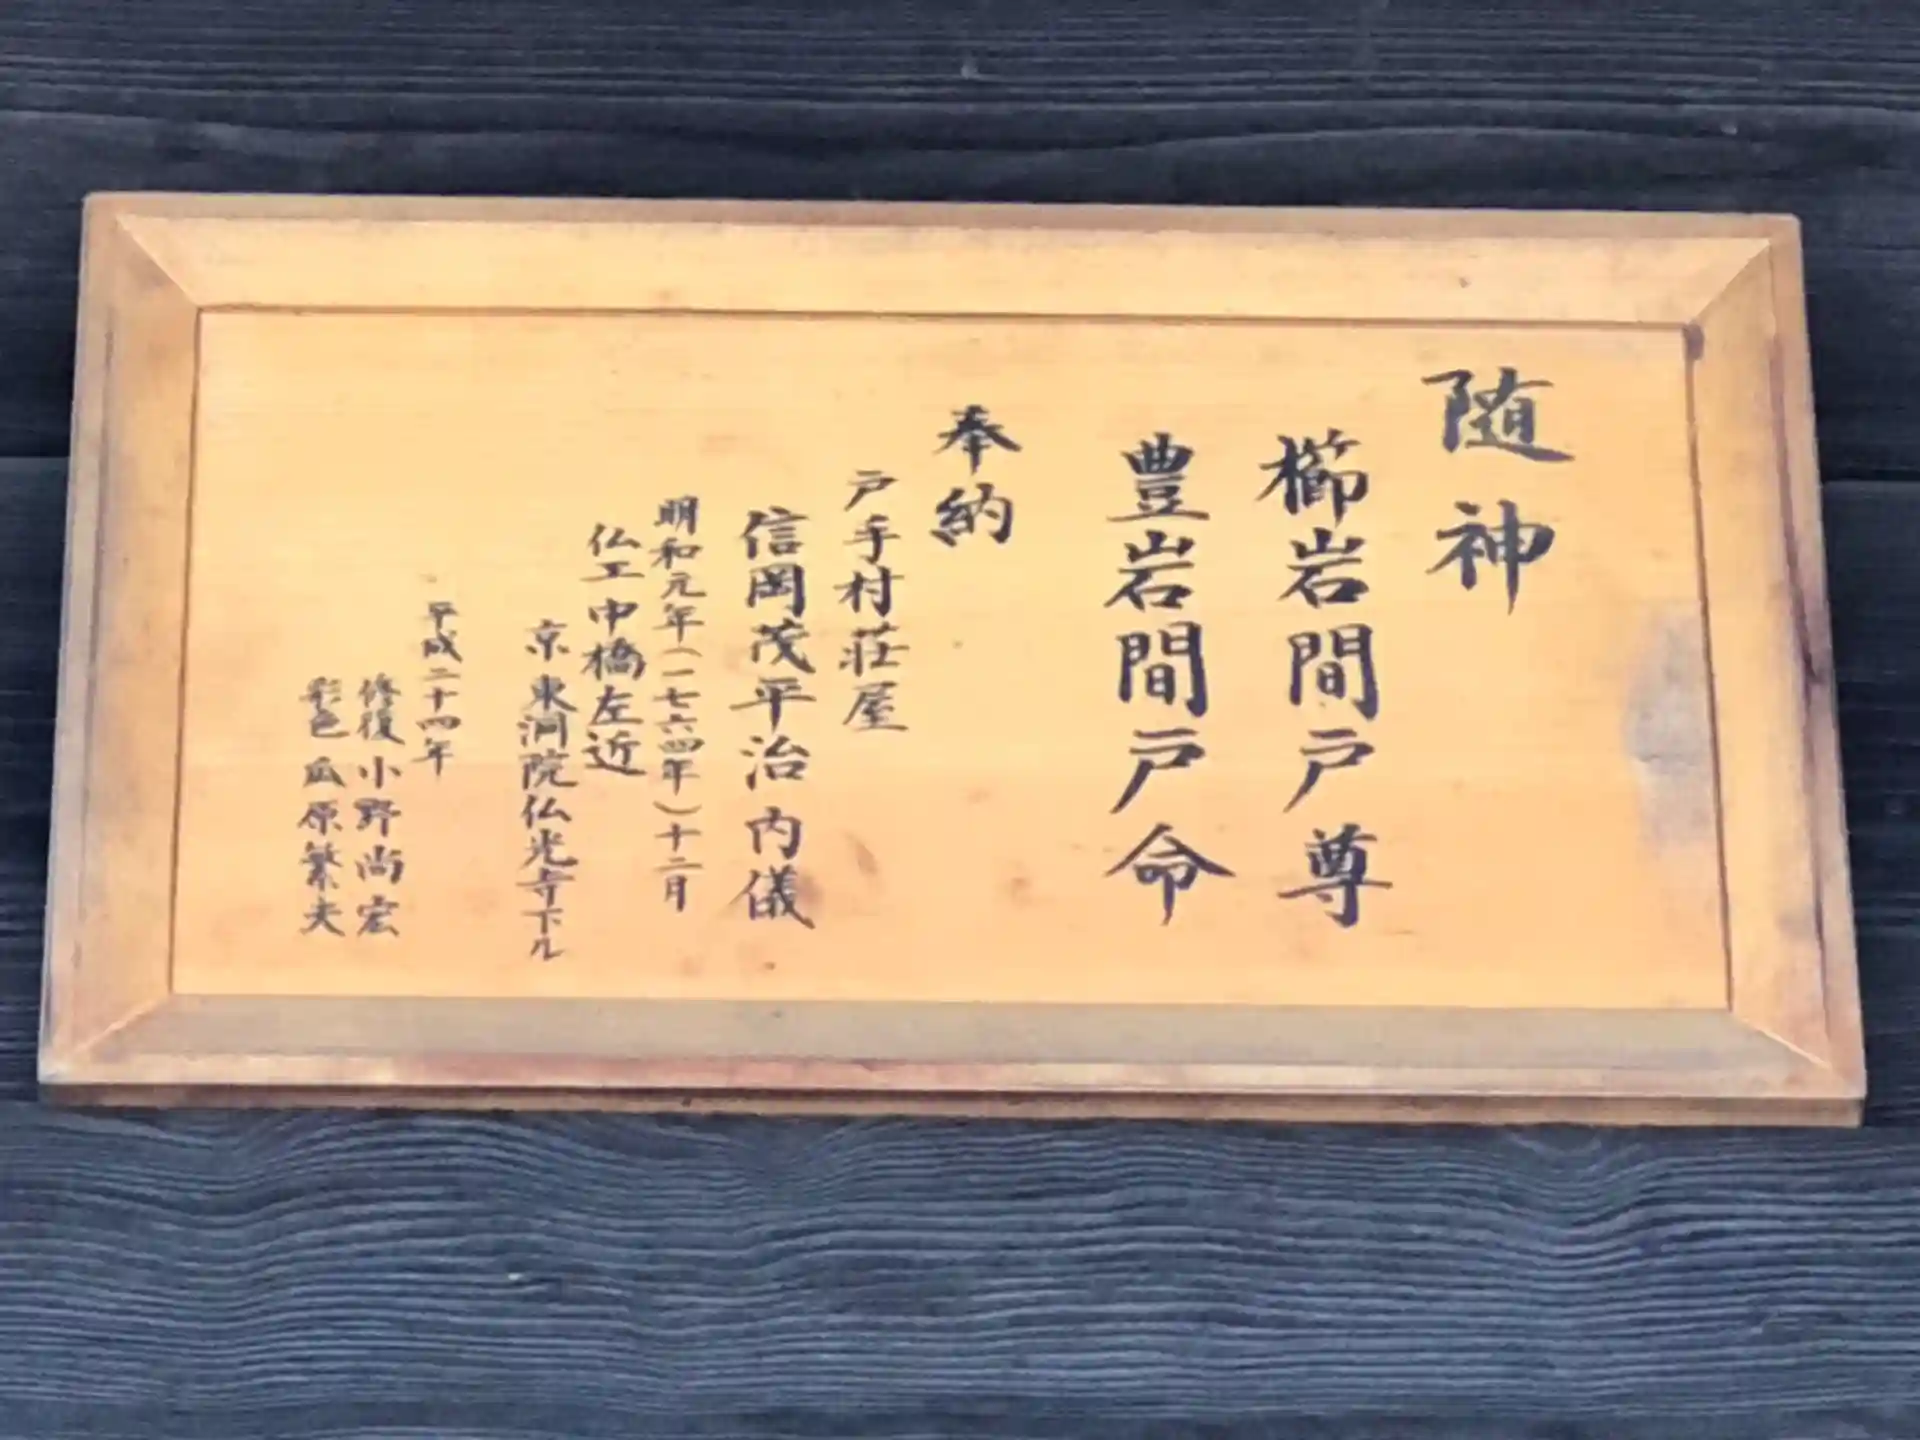 随神
櫛岩間戸尊
豊岩間戸命
奉納
戸手村荘屋
信岡茂平治内儀
明和元年(一七六四年)十二月
仏工中橋左近
京東洞院仏光寺下ル
平成二十四年
修復 小野尚宏
彩色 瓜原繁夫